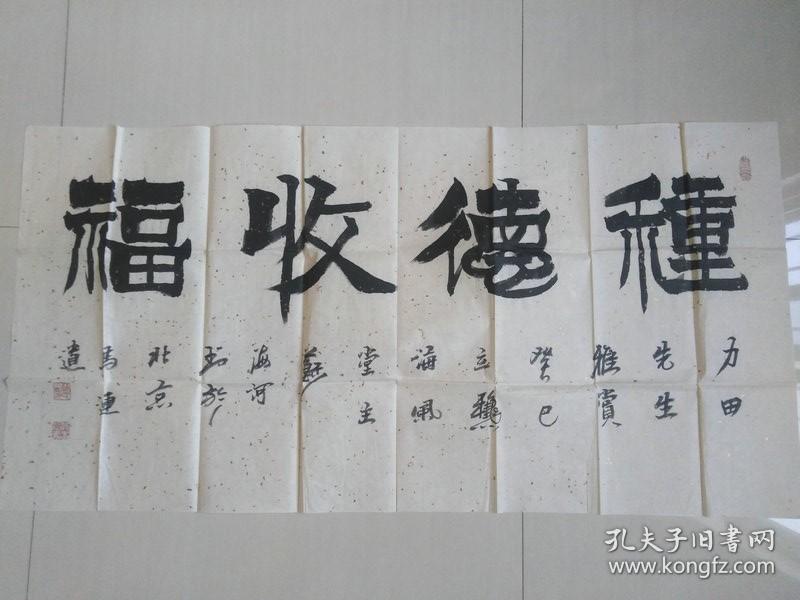 種德收福
力田
先生
雅賞
癸巳
立
海佩
堂主
蘇
海河
於
北京
馬連
道
孔夫子旧书网
www.kongfz.com